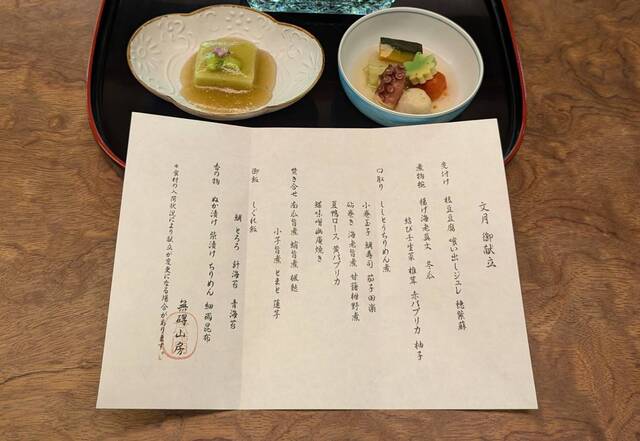 文月 御献立
先付け 枝豆豆腐 喰い出しジュレ 穂紫蘇
煮物椀 揚げ海老真丈 冬瓜
結び壬生菜 椎茸 赤パプリカ 柚子
口取り ししとうちりめん煮
小巻玉子 鯛寿司 茄子田楽
砧巻き 海老旨煮 甘藷梔野煮
豆鴨ロース 黄パプリカ
鰆味噌幽庵焼き
焚き合せ 南瓜旨煮 蛸旨煮
小芋旨煮 とまと 蓮芋
御飯 しぐれ飯
鯛 とろろ 針海苔 青海苔
香の物 ぬか漬け 柴漬け ちりめん 細切昆布
*食材の入荷状況により献立が変更になる場合があります。
無碍山房